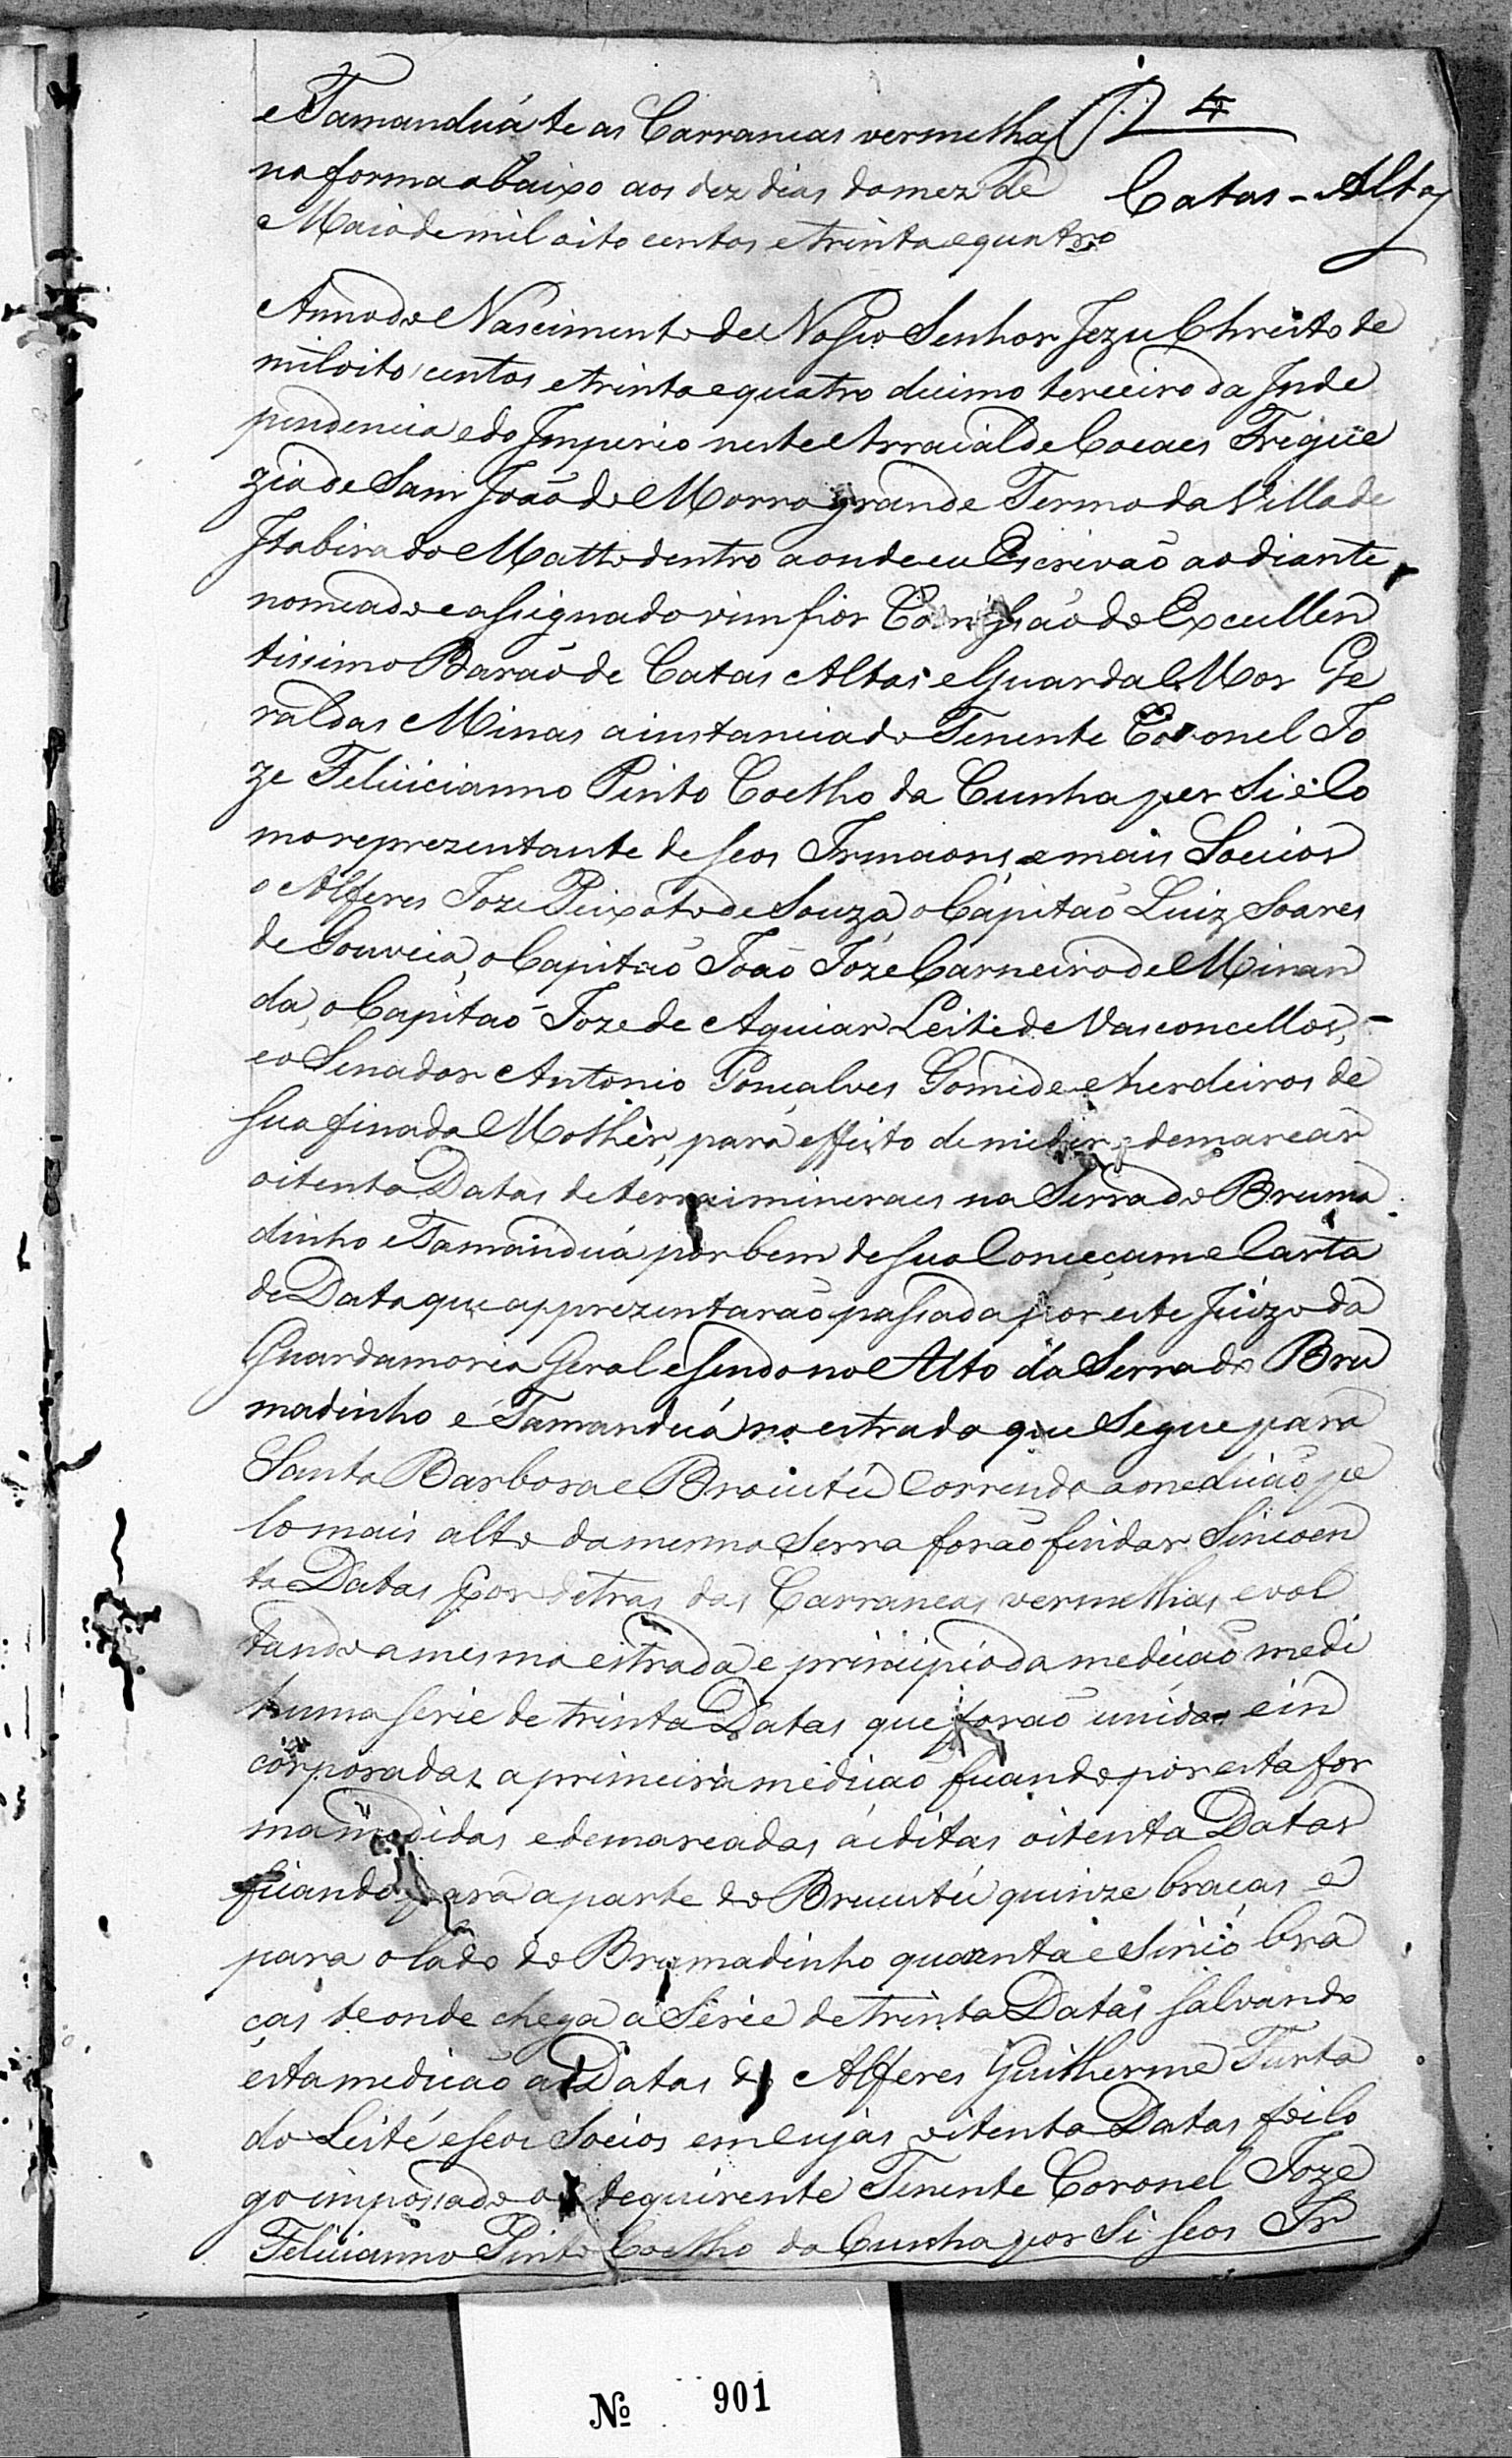 e Tamanduá te as Carrancas vermelhas 4
na forma abaixo aos dez dias do mez de
Catas-Altas
Maio de mil oito centos e trinta e quatro
Anno do Nascimento de Nosso Senhor Jezu Christo de
mil oito centos e trinta e quatro decimo terceiro da Inde
pendencia e do Imperio neste Arraial de Cocaes Fregue
zia de Sam João do Morro grande Termo da Villa de
Itabira do Matto dentro aonde eu Escrivaõ ao diante
nomeado e assignado vim por Comissaõ do Excellen
tissimo Baraõ de Catas Altas e Guarda Mor Ge
ral das Minas a instancia do Tenente Coronel Jo
ze Feliicianno Pinto Coelho da Cunha per Si e Co
mo reprezentante de seos Irmaons, e mais Socios
o Alferes Joze Peixoto de Souza, o Capitaõ Luiz Soares
de Gouveia, o Capitaõ Joaõ Joze Carneiro de Miran
da, o Capitaõ Joze de Aguiar Leite de Vasconcellos, -
e o Senador Antonio Gonçalves Gomide e herdeiros de
sua finada Molher, para effeito de medir e demarcar
oitenta Datas de terras mineraes na Serra do Bruma
dinho e Tamanduá por bem de sua Conceçam e Carta
de Data que apprezentaraõ passada por este Juizo da
Guardamoria Geral e sendo no Alto da Serra do Bru
madinho e Tamanduá na estrada que Segue para
Santa Barbora e Brucutú Correndo a mediçaõ pe
lo mais alto da mesma Serra foraõ findar Sincoen
ta Datas por detras das Carrancas vermelhas e vol
tando a mesma estrada e principio da mediçaõ medi
huma serie de trinta Datas que foraõ unidas e in
corporadas a primeira mediçaõ ficando por esta for
ma medidas e demarcadas as ditas oitenta Datas
ficando para a parte do Brucutú quinze braças e
para o lado do Brumadinho quarenta e Sinco bra
ças te onde chega a Serie de trinta Datas salvando
esta mediçaõ as Datas do Alferes Guilherme Furta
do Leite e seos Socios em Cujas oitenta Datas foi lo
go impossado o dequirente Tenente Coronel Joze
Felicianno Pinto Coelho da Cunha por Si seos Ir
Nº 901